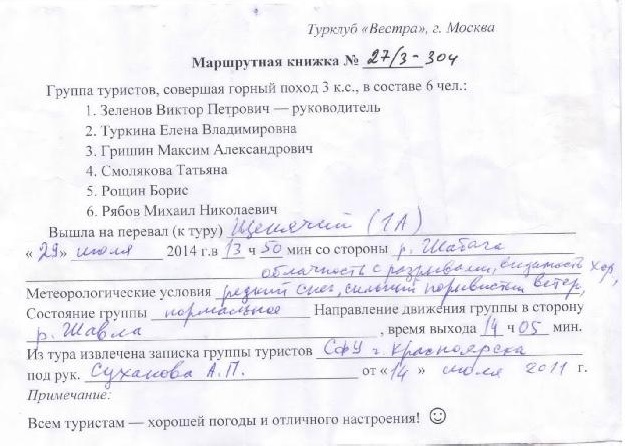 Турклуб «Вестра», г. Москва
Маршрутная книжка № 27/3-304
Группа туристов, совершая горный поход 3 к.с., в составе 6 чел.:
1. Зеленов Виктор Петрович — руководитель
2. Туркина Елена Владимировна
3. Гришин Максим Александрович
4. Смолякова Татьяна
5. Рощин Борис
6. Рябов Михаил Николаевич
Вышла на перевал (к туру) Щенячий (1А)
« 29» июля 2014 г.в 13 ч 50 мин со стороны р. Шабага
облачность с разрывами, видимость хор,
Метеорологические условия редкий снег, сильный порывистый ветер,
Состояние группы нормальное Направление движения группы в сторону
р. Шавла , время выхода 14 ч 05 мин.
Из тура извлечена записка группы туристов СФУ г. Красноярска
под рук. Суханова А.П. от «14 » июля 2011 г.
Примечание:
Всем туристам — хорошей погоды и отличного настроения! ☺